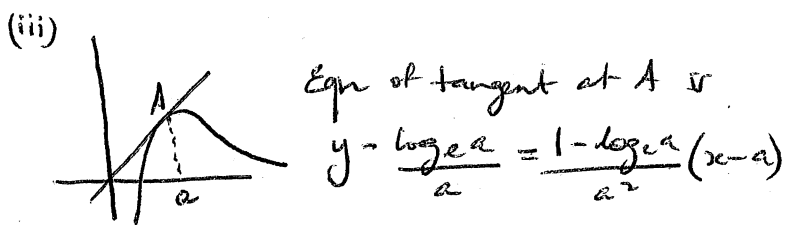 (iii)
A
a
Eqn of tangent at A is
y - logₑa/a = 1 - logₑa/a² (x-a)